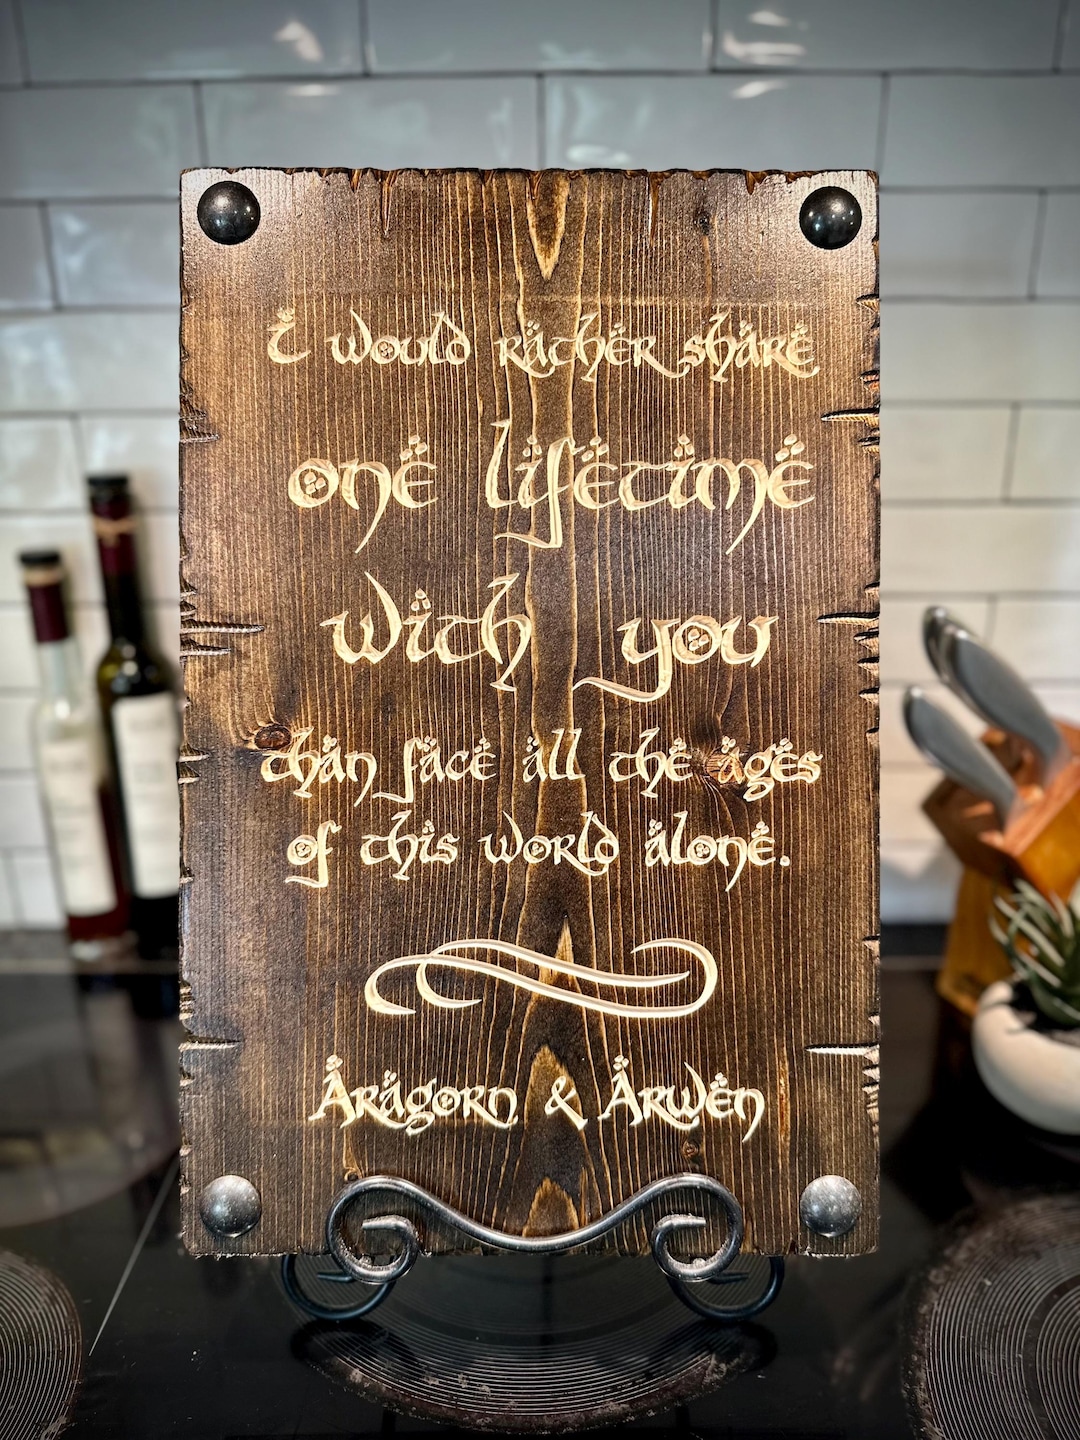 I would rather share
one lifetime
with you
than face all the ages
of this world alone.
Aragorn & Arwen